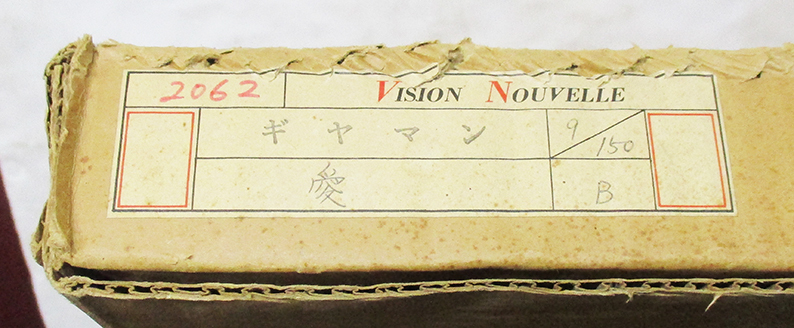 2062 VISION NOUVELLE
ギヤマン 9/150
愛 B